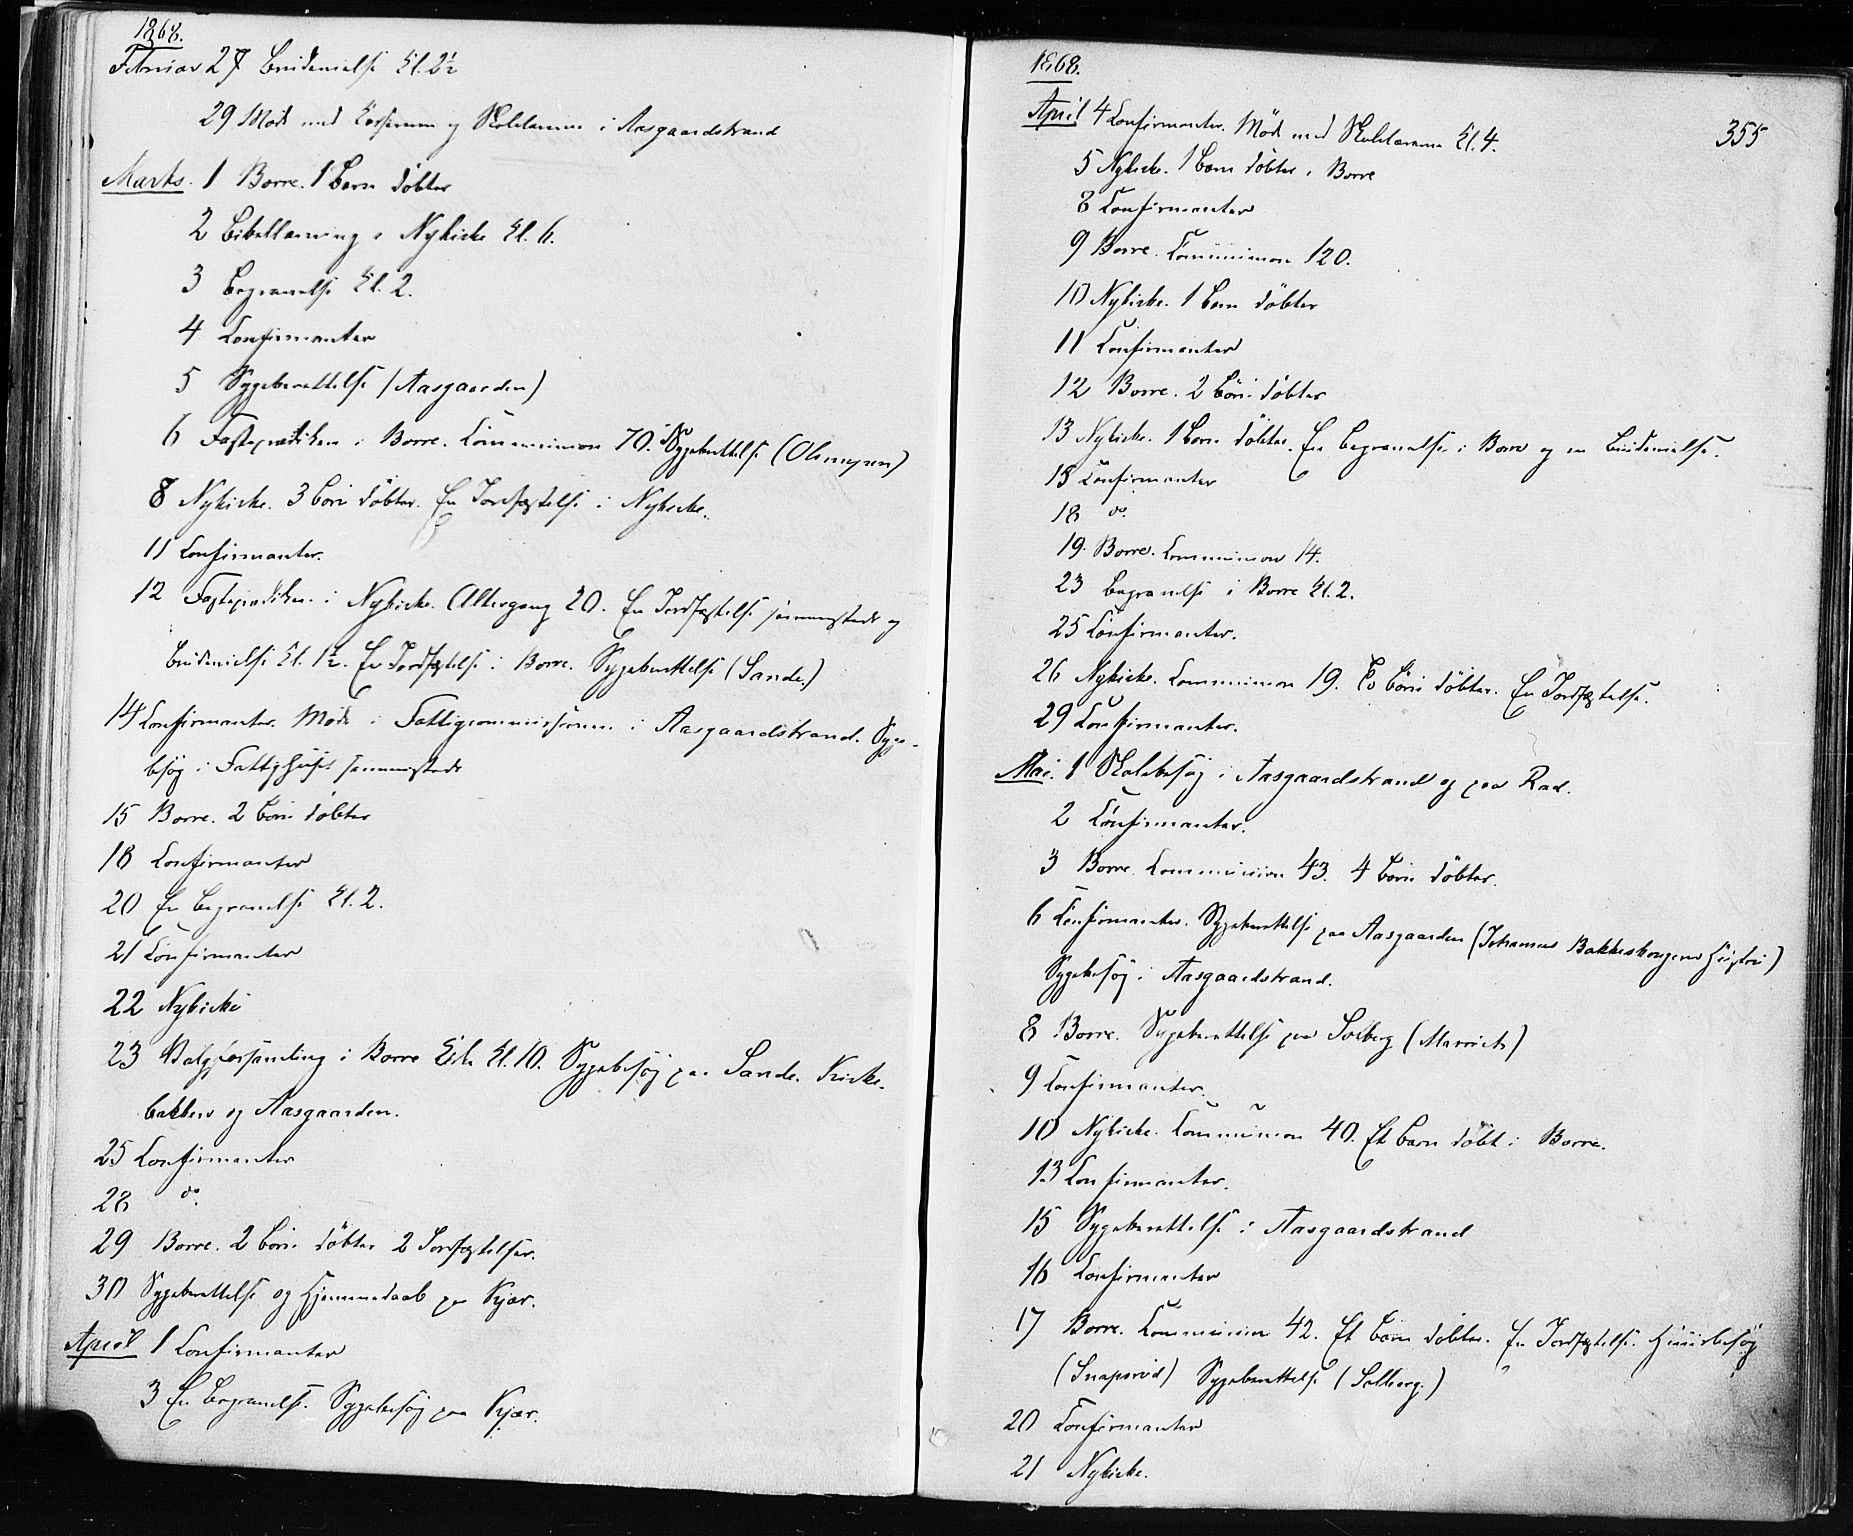 1868.
Februar 27 Brudevielse Kl. 2½
29 Møde med og Skolelærerne i Aasgaardstrand
Marts. 1 Borre. 1 Barn døbter
2 Bibellæsning i Nykirke Kl. 6.
3 Begravelse Kl. 2.
4 Confirmanter
5 Sygeberettelse (Aasgaarden)
6 Fasteprædiken i Borre. Communion 70. Sygeberettelse
8 Nykirke. 3 Børn døbter. En Jordfæstelse i Nykirke.
11 Confirmanter.
12 Fasteprædiken i Nykirke. Altergang 20. En Jordfæstelse sammesteds og
Brudevielse Kl. 1½. En Jordfæstelse i Borre. Sygeberettelse (Sande.)
14 Confirmanter. Møde i Fattigcommissionen i Aasgaardstrand. Syge-
besøg i Fattighuset sammesteds
15 Borre. 2 Børn døbter
18 Confirmanter
20 En Begravelse Kl. 2.
21 Confirmanter
22 Nykirke
23 Valgforsamling i Borre Kirke Kl. 10. Sygebesøg paa Sande. Kirke-
bakken og Aasgaarden.
25 Confirmanter
28 do.
29 Borre. 2 Børn døbter 2 Jordfæstelser.
30 Sygeberettelse og Hjemmedaab paa Kjær.
April 1 Confirmanter
3 En Begravelse. Sygebesøg paa Kjær.
1868.
355
April 4 Confirmanter. Møde med Skolelærerne Kl. 4.
5 Nykirke. 1 Barn døbter i Borre
8 Confirmanter
9 Borre. Communion 120.
10 Nykirke. 1 Barn døbter
11 Confirmanter
12 Borre. 2 Børn døbter
13 Nykirke. 1 Barn døbter. En Begravelse i Borre og en Brudevielse.
15 Confirmanter
18 do.
19. Borre. Communion 14.
23 Begravelse i Borre Kl. 2.
25 Confirmanter.
26 Nykirke. Communion 19. To Børn døbter. En Jordfæstelse.
29 Confirmanter.
Mai. 1 Skolebesøg i Aasgaardstrand og paa Rød.
2 Confirmanter.
3 Borre. Communion 43. 4 Børn døbter.
6 Confirmanter. Sygeberettelse paa Aasgaarden (Johannes Bakkeskougens Hustru)
Sygebesøg i Aasgaardstrand.
8 Borre. Sygeberettelse paa Solberg
9 Confirmanter.
10 Nykirke. Communion 40. Et Barn døbt i Borre.
13 Confirmanter.
15 Sygeberettelse i Aasgaardstrand
16 Confirmanter
17 Borre. Communion 42. Et Barn døbter. En Jordfæstelse. Huusbesøg
(Snapsrød) Sygeberettelse (Solberg.)
20 Confirmanter
21 Nykirke.